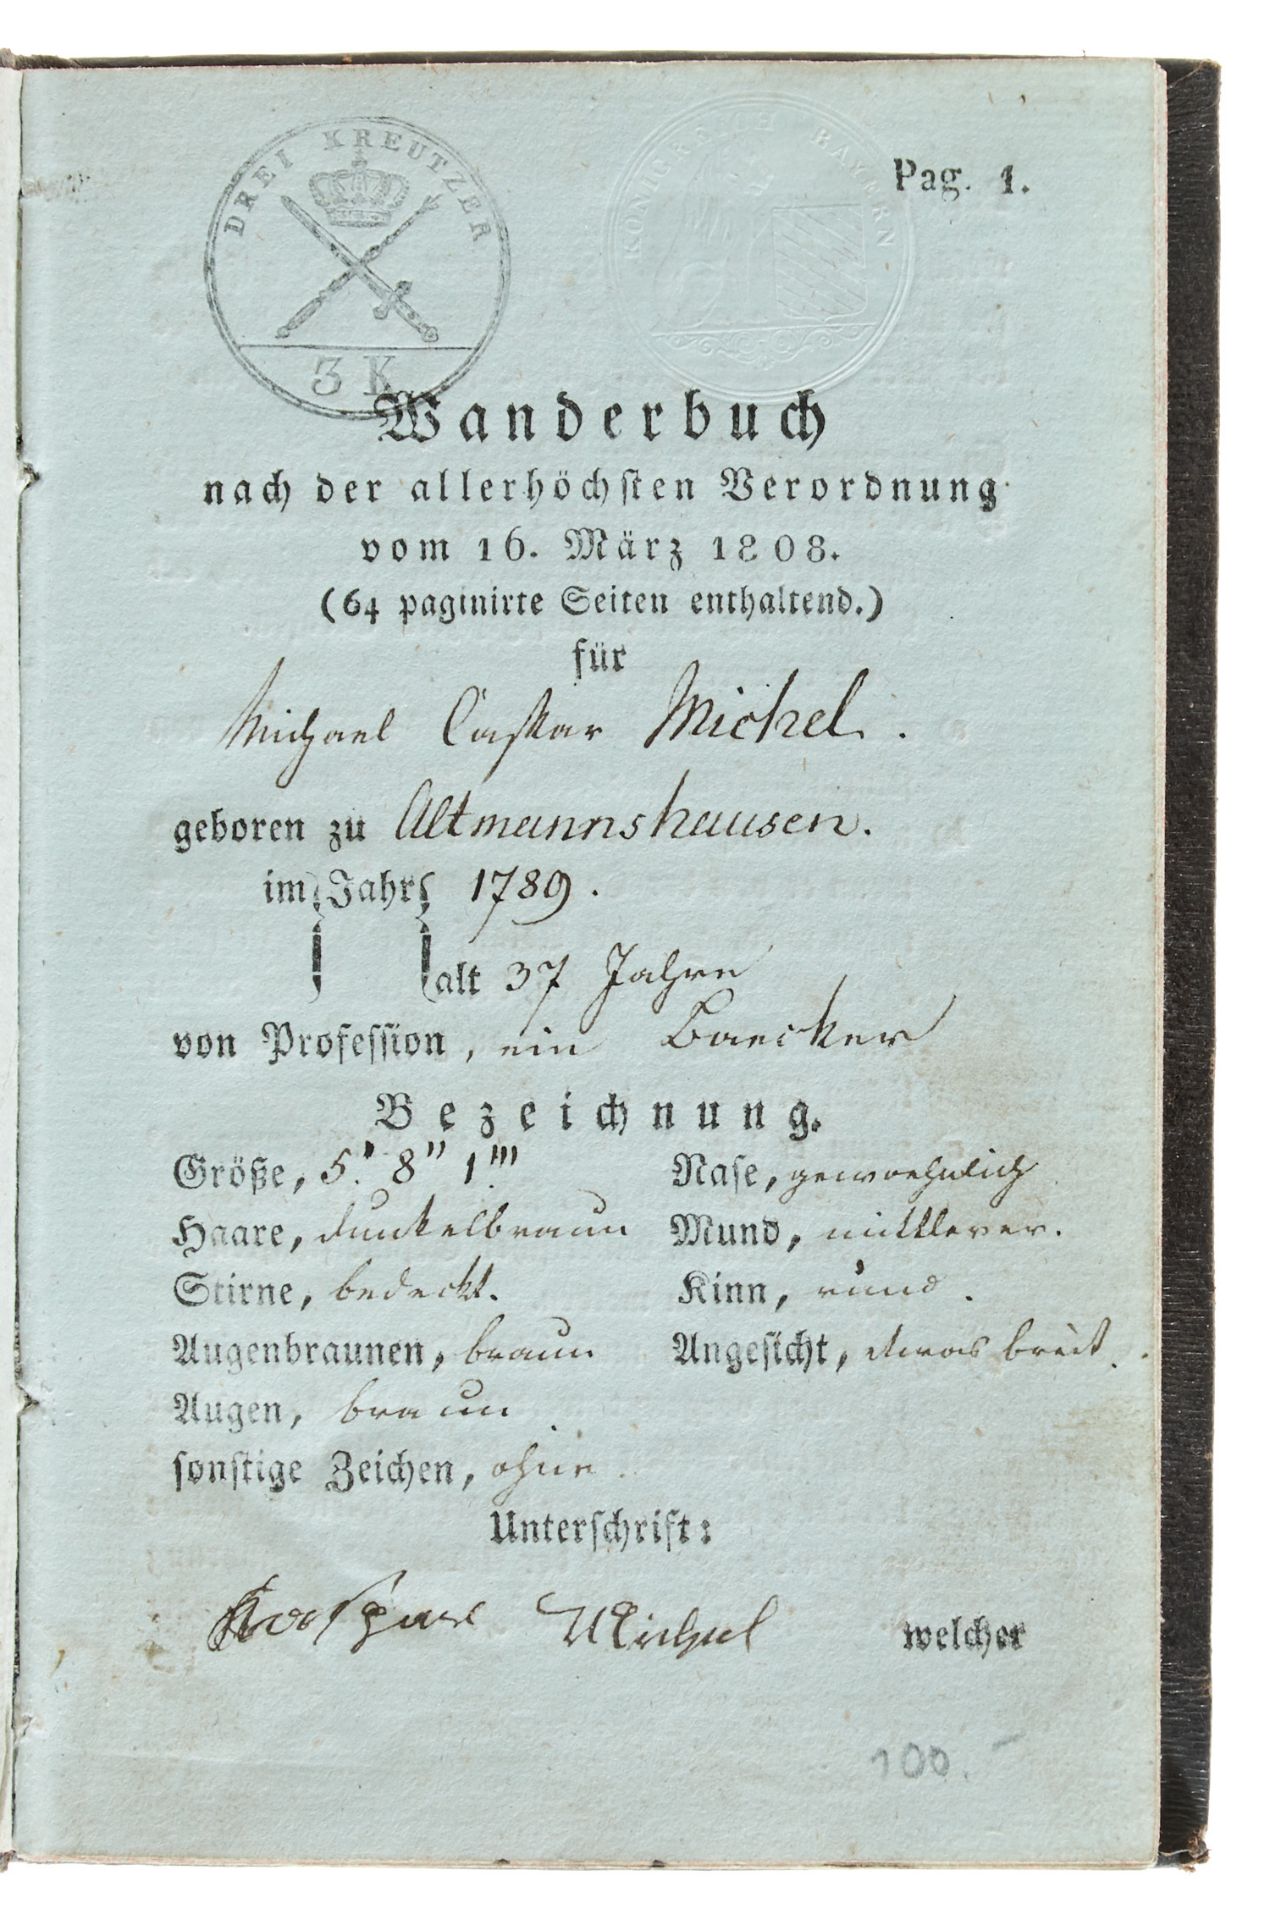 DREI KREUTZER
3 K
KÖNIGREICH BAYERN
Pag. 1.
Wanderbuch
nach der allerhöchsten Verordnung
vom 16. März 1808.
(64 paginirte Seiten enthaltend.)
für
Michael Caspar Michel.
geboren zu Altmannshausen.
im Jahr 1789.
alt 37 Jahre
von Profession, ein Baecker
Bezeichnung.
Größe, 5' 8" 1'''
Nase, gewoehnlich
Haare, dunkelbraun
Mund, mittlerer.
Stirne, bedeckt.
Kinn, rund.
Augenbraunen, braun
Angesicht, etwas breit.
Augen, braun
sonstige Zeichen, ohne.
Unterschrift:
Kaspar Michel
welcher
100.-